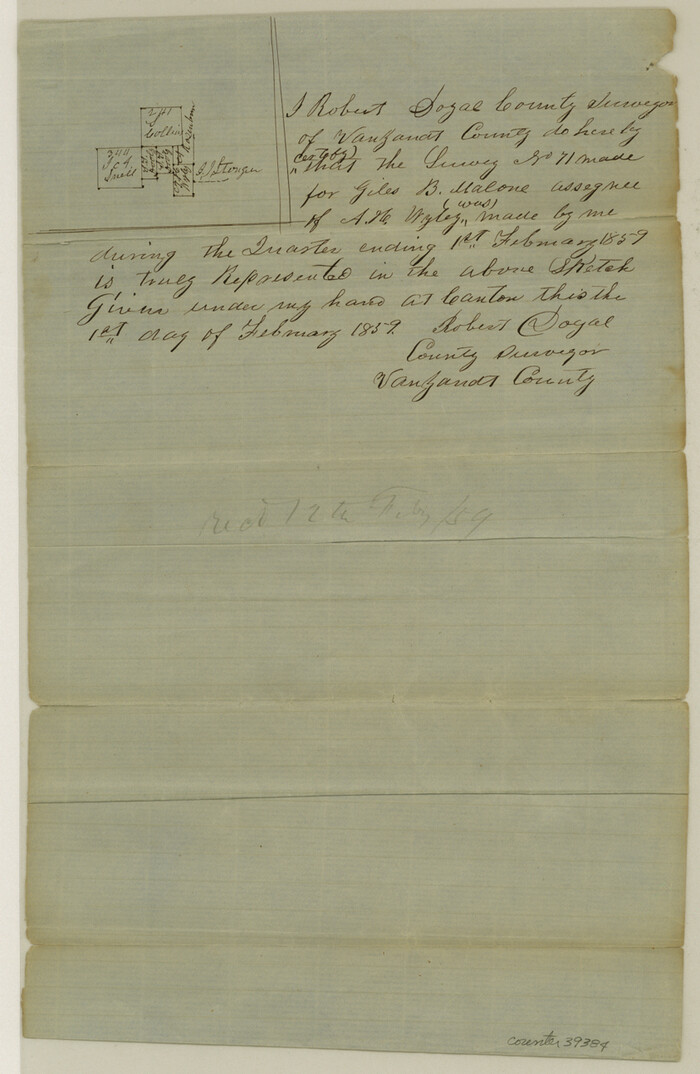 Collin
Snell
J J Stonger
I Robert Dogal County Surveyor
of Vanzandt County do hereby
(certify)
that the Survey No 71 made
for Giles B. Malone assegnee
of A. W. Wyley (was) made by me
during the Quarter ending 1st February 1859
is truly Represented in the above Sketch
Given under my hand at Canton this the
1st day of February 1859. Robert Dogal
County Surveyor
Vanzandt County
Recd 12th Feby /59
counter 39384